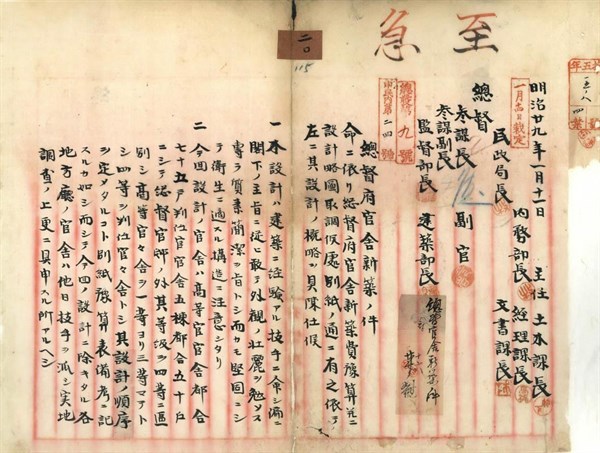 至急
二〇
115
明治廿九年一月十一日
主任 土木課長
一月 日裁定
內務部長 經理課長
文書課長
民政局長
總督
參謀長 副官
參謀副長
監督部長 建築部長
九號
總督府官舍新築ノ件
命ニ依リ総督府官舍新築費豫算並ニ
設計略圖取調候處別紙ノ通ニ有之依テ
左ニ其設計ノ概略ヲ具陳仕候
一本設計ハ建築ニ経験アル技手ニ命シ専ニ
閣下ノ主旨ニ従ヒ敢テ外觀ノ壮麗ヲ勉メス
専ラ質素簡潔ヲ旨トシ而カモ堅固ニシ
テ衛生ニ適スル構造ニ注意シタリ
二今回設計ノ官舍ハ高等官官舍都合
七十五戸判任官官舍五棟都合五十戸
ニシテ総督官邸ノ外其等級ヲ四等ニ區
別シ高等官々舍ヲ一等ヨリ三等マテト
シ四等ヲ判任官々舍トシ其設計ノ順序
ヲ定メタルコト別紙豫算表備考ニ記
スルカ如シ而シテ今回ノ設計ニ除キタル各
地方廳ノ官舍ハ他日技手ヲ派シ実地
調査ノ上更ニ具申スル所アルヘシ